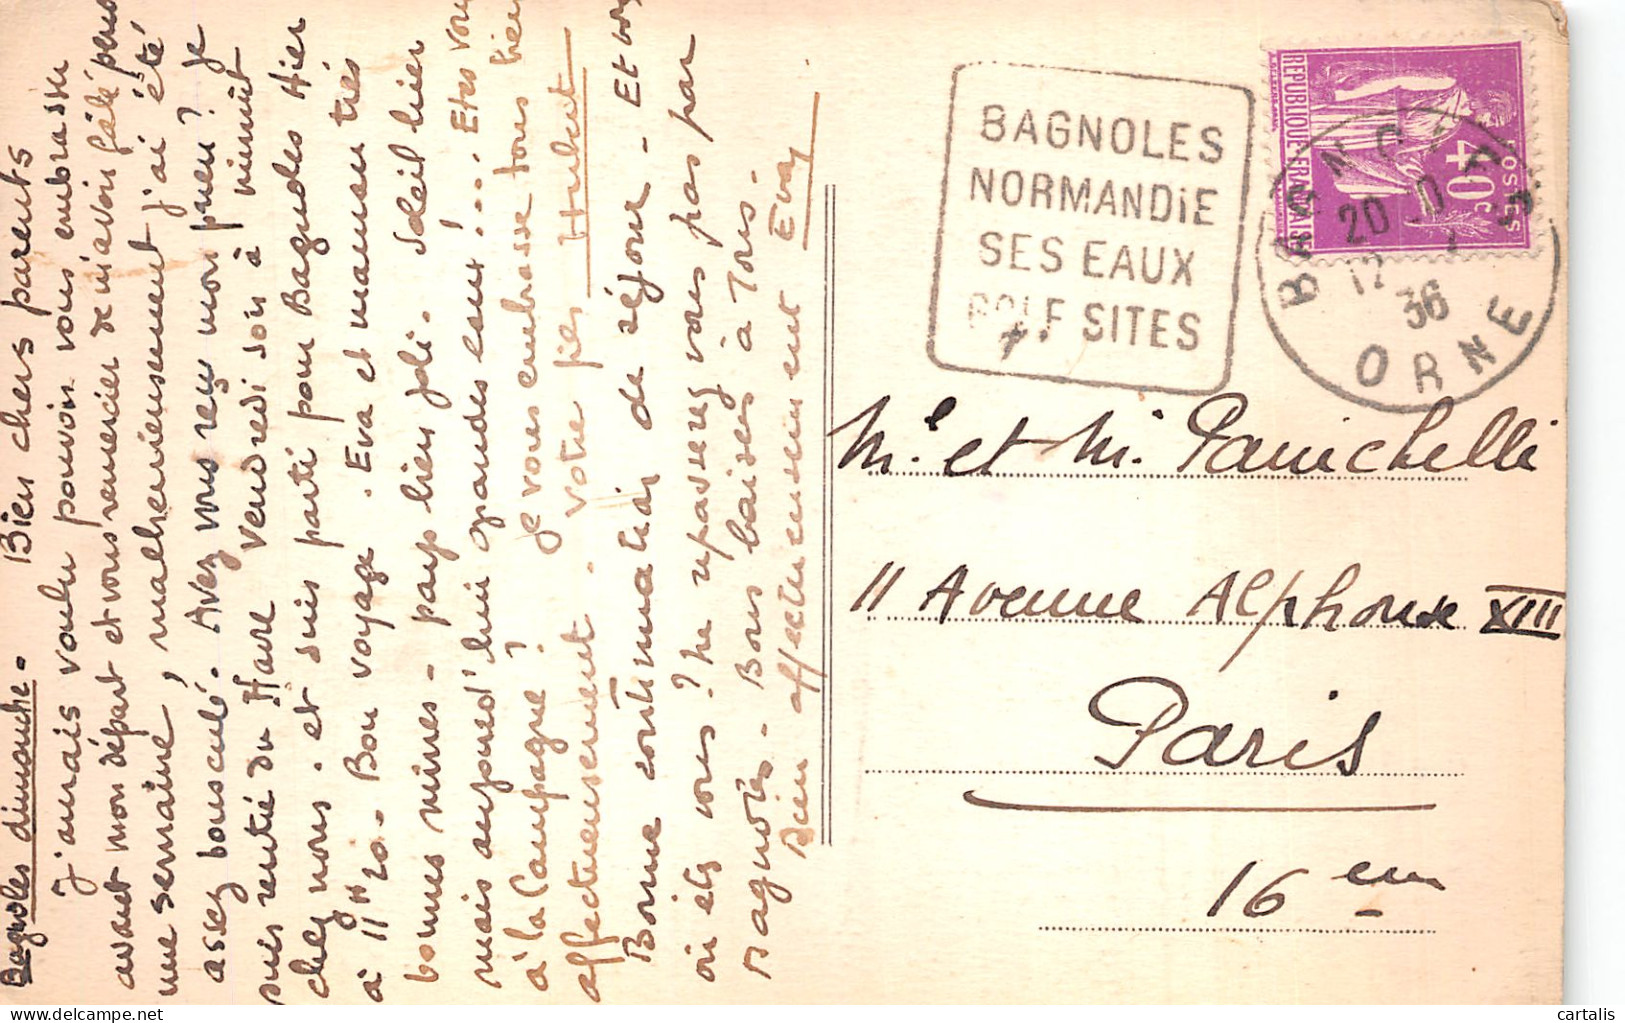 Bagnoles dimanche. Bien chers parents
J'aurais voulu pouvoir vous embrasser
avant mon départ et vous remercier de m'avoir fêté
une semaine, malheureusement j'ai été
assez bousculé. Avez vous reçu mon pneu? Je
suis rentré du Havre vendredi soir à minuit
chez nous. et suis parti pour Bagnoles Hier
à 11H20. Bon voyage. Eva et maman très
bonnes mines - pays bien joli. Soleil hier
mais aujourd'hui grandes eaux!... Etes vous
à la Campagne? Je vous embrasse tous bien
affectueusement. votre fils Hubert
Bonne continuation de séjour - Et
où êts vous? Ne repassez vous pas par
Bagnoles. Bons baisers à Tous.
Bien affectueusement Eva
BAGNOLES
NORMANDIE
SES EAUX
SITES
REPUBLIQUE-FRANÇAISE
40c
POSTES
BAGNOLES
20
12
36
ORNE
Me et M. Panichelli
11 Avenue Alphonse XIII
Paris
16 em
cartalis